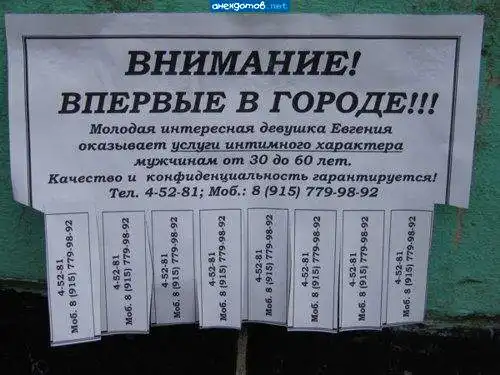 анекдотов.net
ВНИМАНИЕ!
ВПЕРВЫЕ В ГОРОДЕ!!!
Молодая интересная девушка Евгения
оказывает услуги интимного характера
мужчинам от 30 до 60 лет.
Качество и конфиденциальность гарантируется!
Тел. 4-52-81; Моб.: 8 (915) 779-98-92
4-52-81
Моб. 8 (915) 779-98-92
4-52-81
Моб. 8 (915) 779-98-92
4-52-81
Моб. 8 (915) 779-98-92
4-52-81
Моб. 8 (915) 779-98-92
4-52-81
Моб. 8 (915) 779-98-92
4-52-81
Моб. 8 (915) 779-98-92
4-52-81
Моб. 8 (915) 779-98-92
4-52-81
Моб. 8 (915) 779-98-92